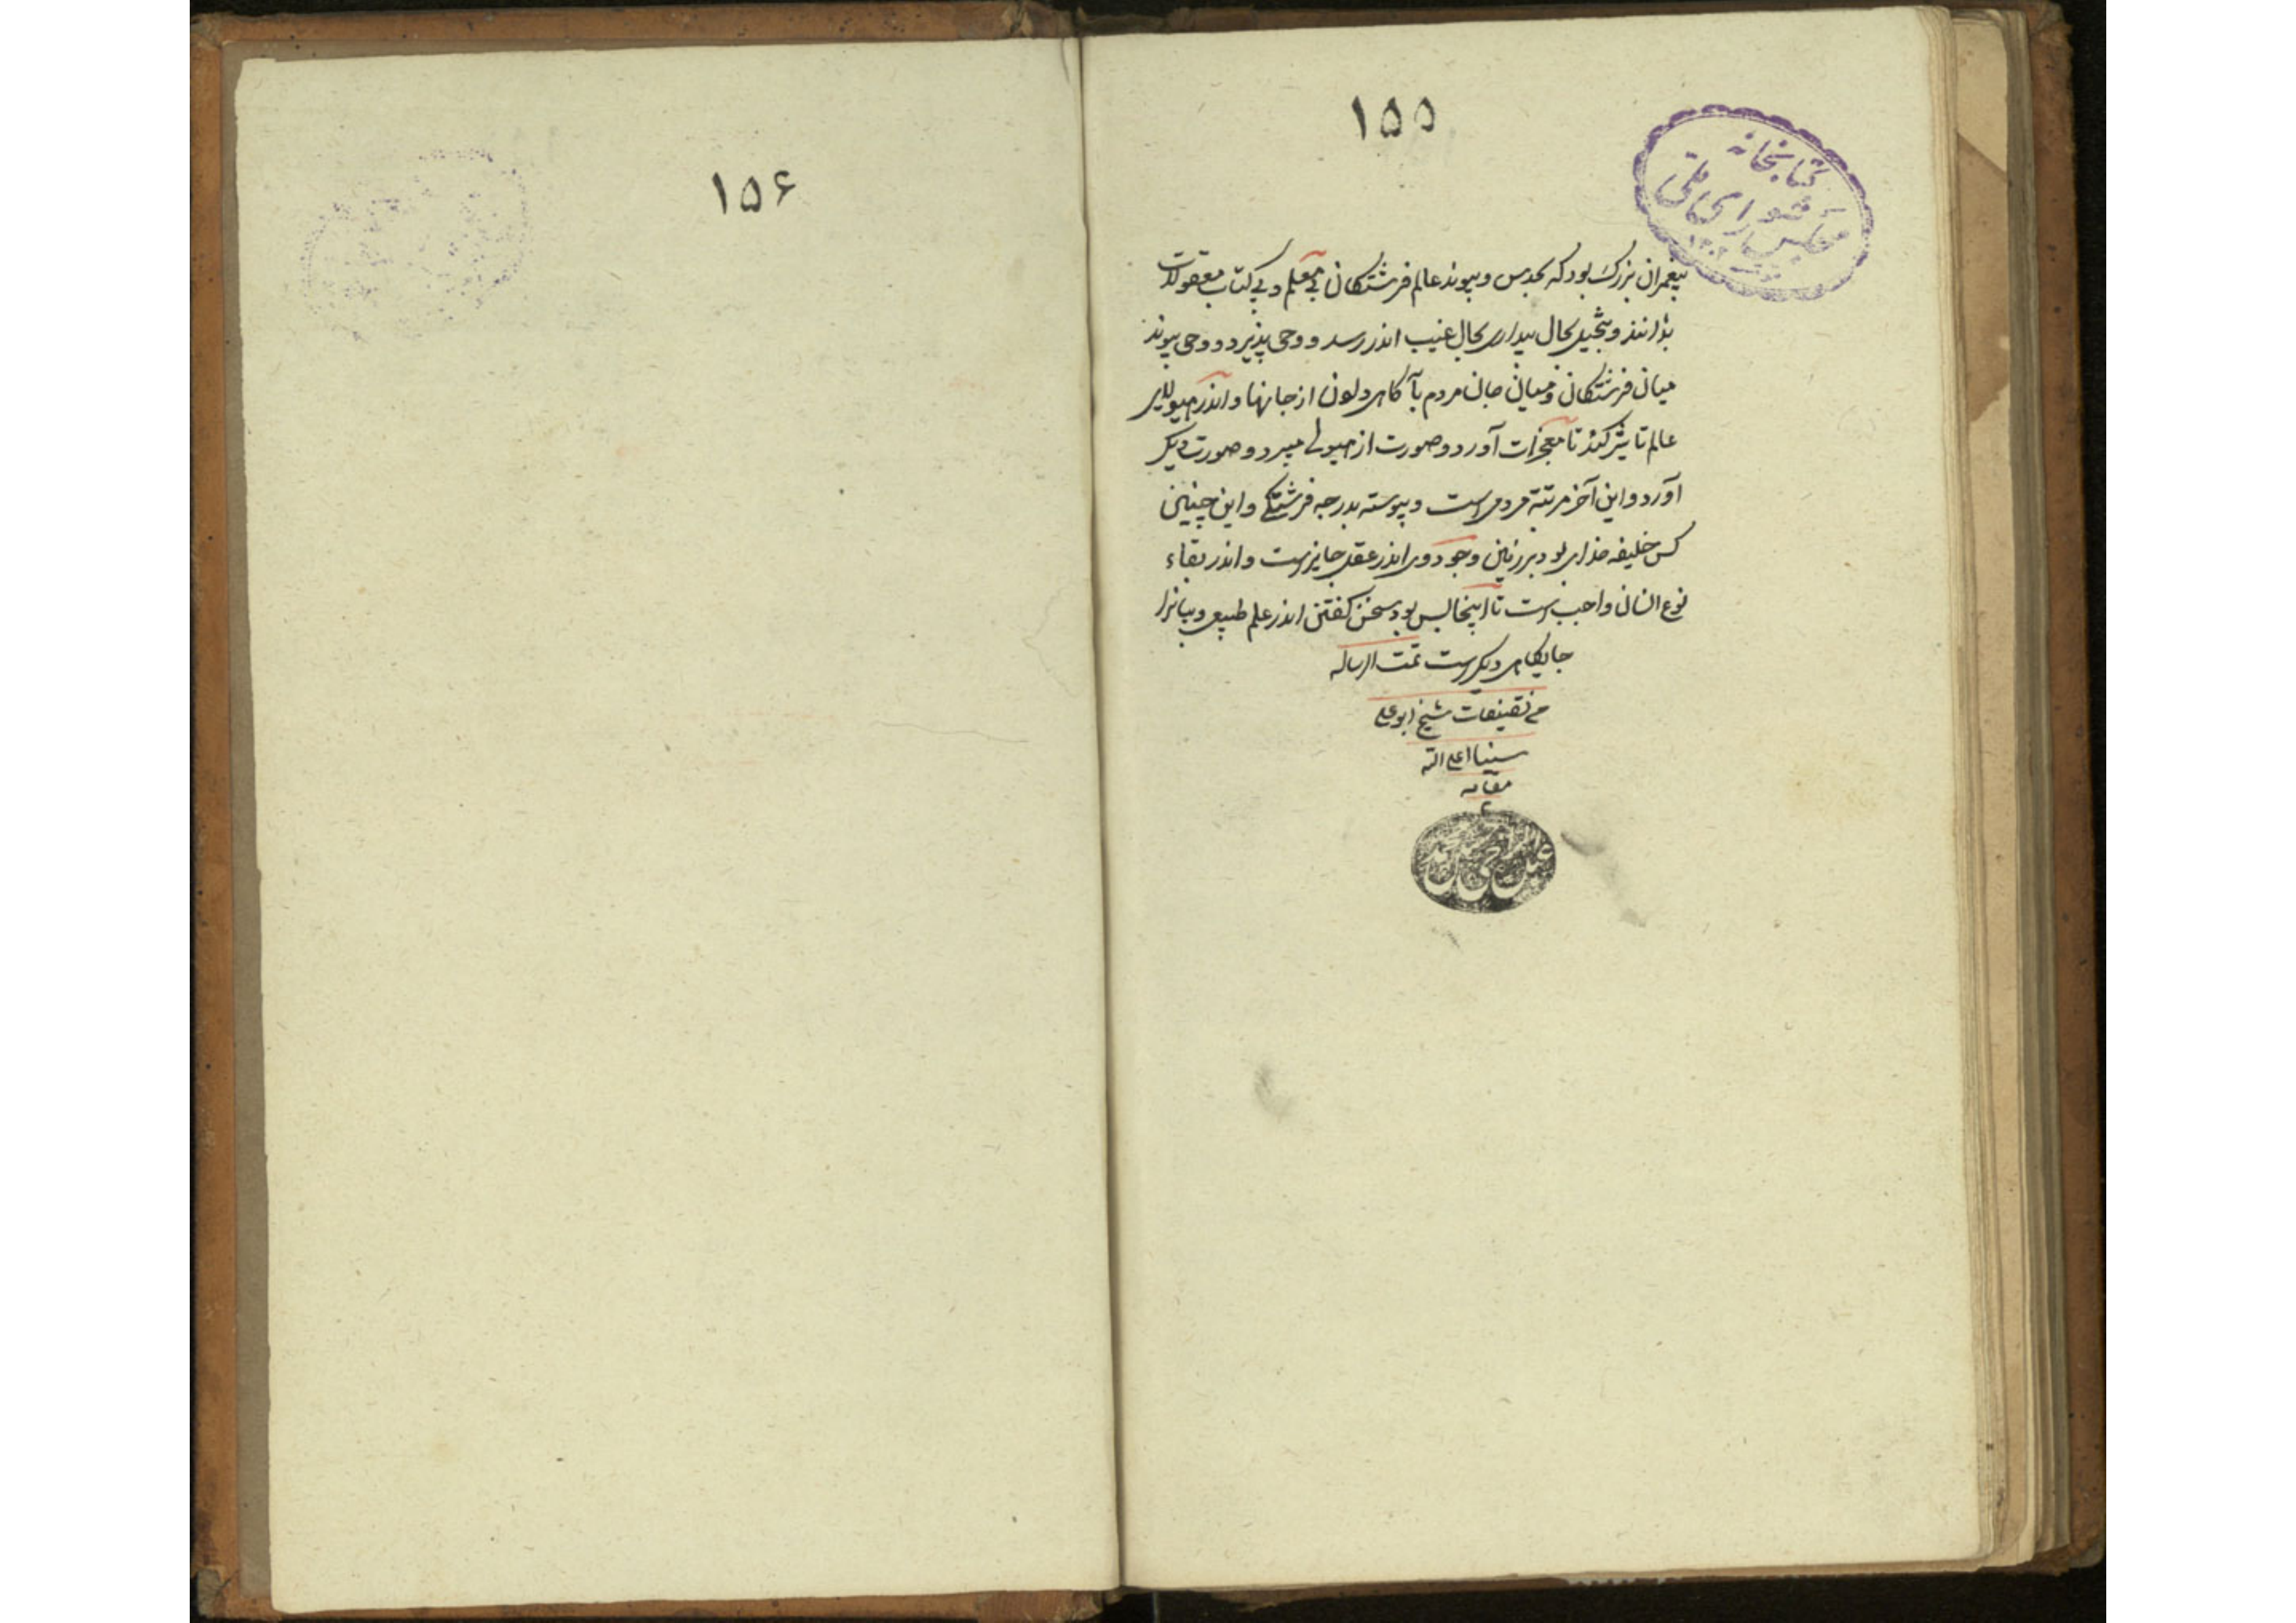 ۱۵۵
کتابخانه
مجلس شورای ملی
پیغمبران بزرگ بود که بحدس و پیوند عالم فرشتگان بی معلم و بی کتاب معقولات
بداند و بتخیل بحال بیداری بحال غیب اندر رسد و وحی پذیرد و وحی پیوند
میان فرشتگان و میان جان مردم بآگاهی از جانها و اندر هیولای
عالم تاثیر کند تا معجزات آورد و صورت از هیولی میبرد و صورت دیکر
آورد و این آخر مرتبة مردمی است و پیوسته بدرجه فرشتکی و این چنین
کس خلیفه خدای بود بر زمین و وجود وی اندر عقل جایز است و اندر بقاء
نوع انسان واجب است تا اینجا بس بود سخن کفتن اندر علم طبیعی و بیانرا
جایکاهی دیکر است تمت الرساله
من تصنیفات شیخ ابو علی
سینا اعلی الله
مقامه
۱۵۶